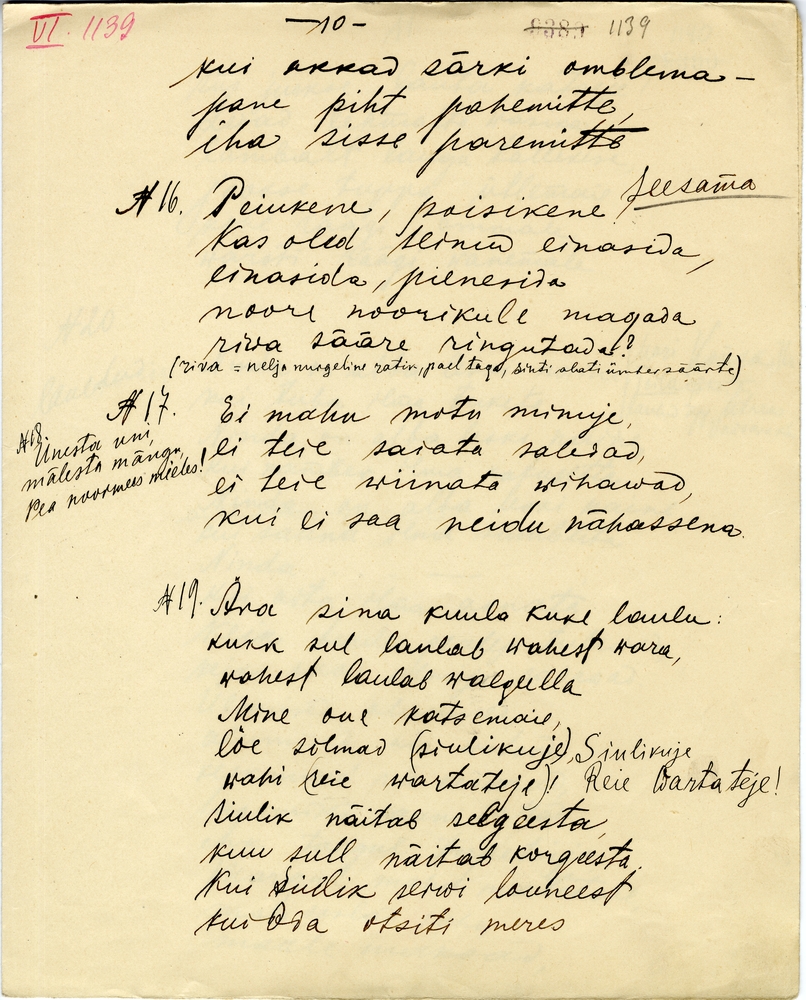 VI. 1139
– 10 –
8383 1139
kui akkad särki omblema –
pane piht pahemitte,
iha sisse paremitte
№ 16. Peiukene, poisikene! seesama
Kas oled teinud einasida,
einasida, pienesida
noore noorikule magada
riwa sääre ringutada?
(riva = nelja nurgeline ratik, pael taga, sinti alati ümber säärte)
№ 17. Ei mahu motu minuje,
ei teie saiata salvad,
ei teie wiinata wihawad,
kui ei saa neidu nähassena.
№ 18.
Unesta uni,
mälesta mängu,
Pea noormees mieles!
№ 19. Ära sina kuula kuke laulu:
kukk sul laulab wahest wara,
wahest laulab walgeella
Mine oue katsemaie,
löe silmad (siulikuje), Siulikuje
wahi (reie wartateje)! Reie Wartateje!
Siulik näitab selgeesta,
kuu sull näitab korgeesta.
Kui Siulik serwi louneest
kui Oda otsiti meres